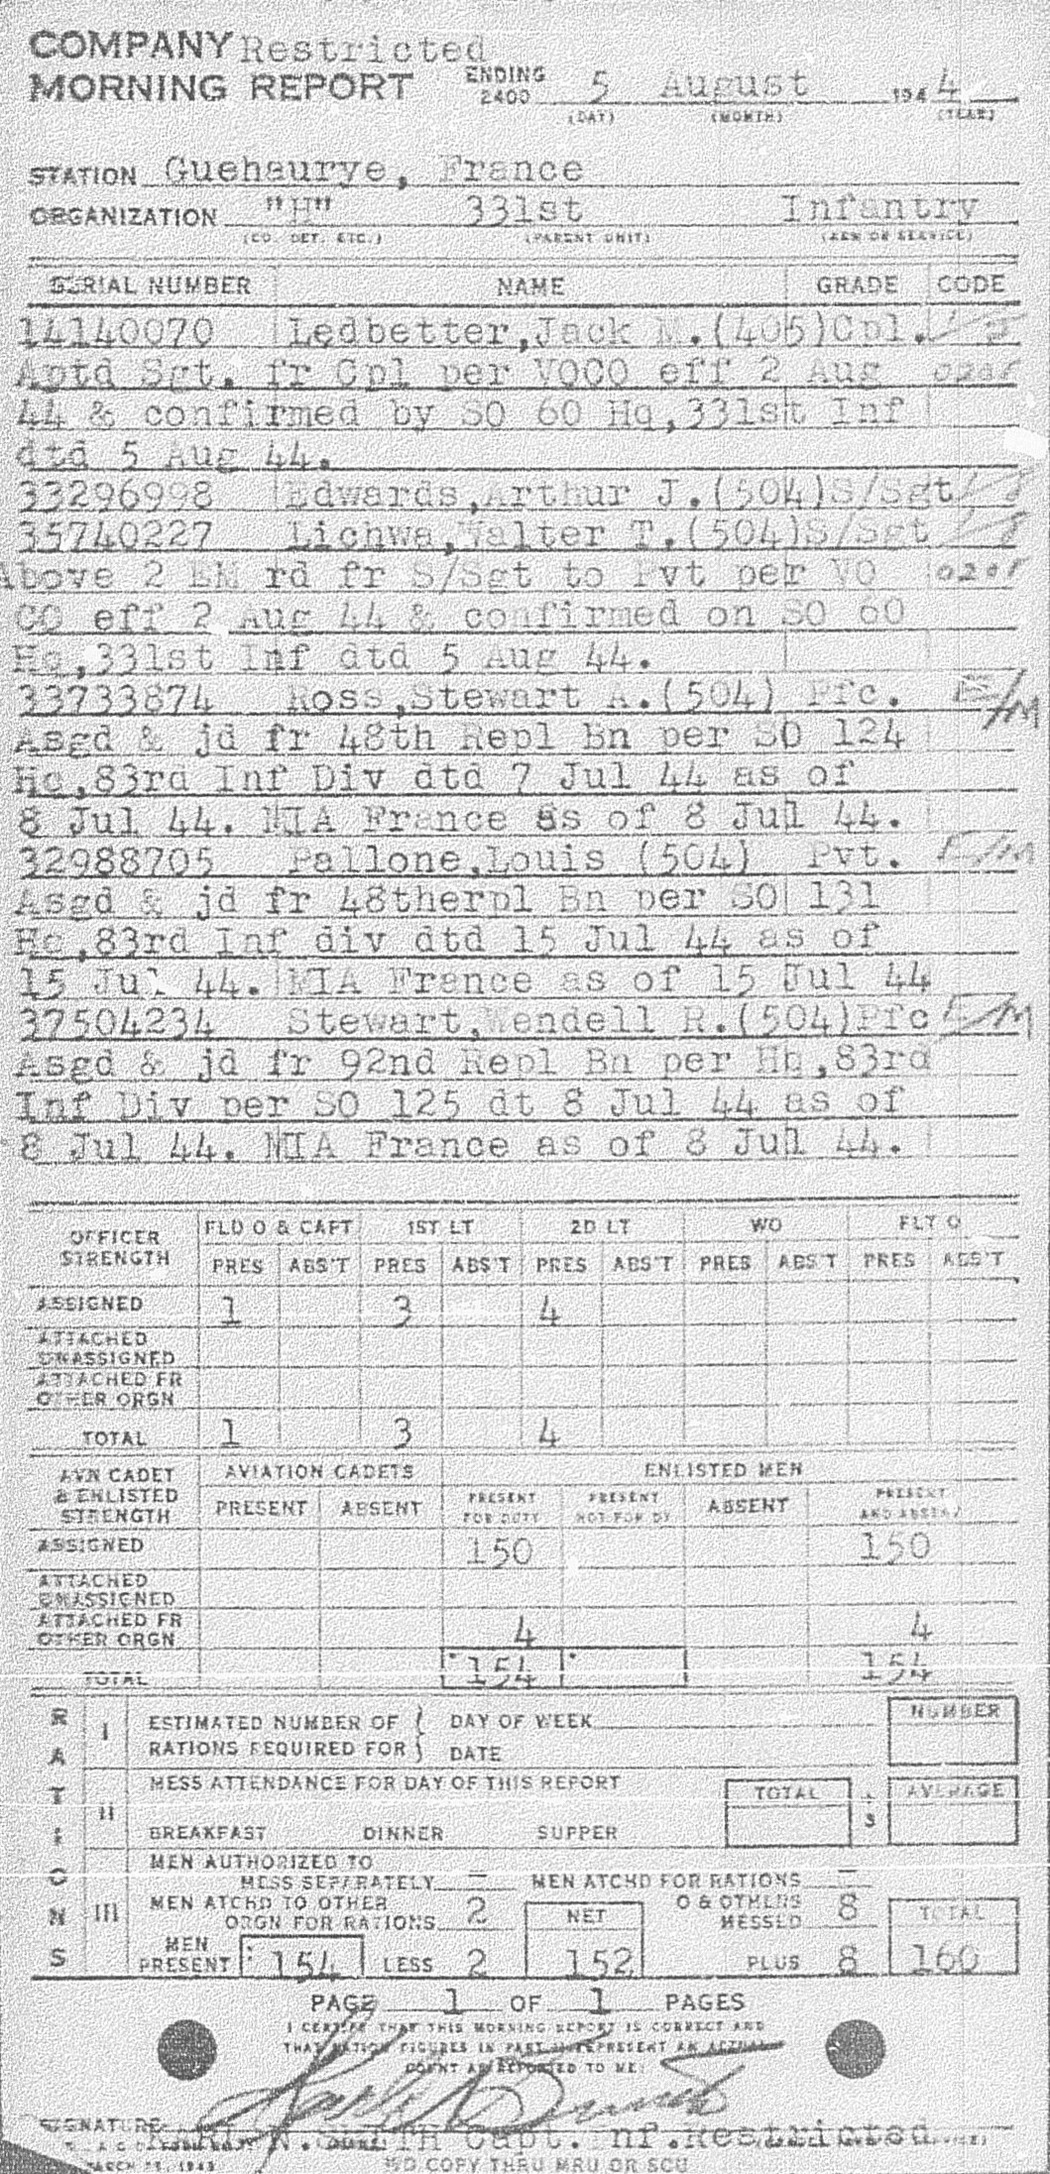 COMPANY Restricted
MORNING REPORT ENDING 2400 5 August 1944
(DAY) (MONTH) (YEAR)
STATION Guehaurye, France
ORGANIZATION "H" 331st Infantry
(CO. DET. ETC.) (PARENT UNIT) (ARM OR SERVICE)
SERIAL NUMBER NAME GRADE CODE
14140070 Ledbetter,Jack M.(405)Cpl.
Aptd Sgt. fr Cpl per VOCO eff 2 Aug
44 & confirmed by SO 60 Hq,331st Inf
dtd 5 Aug 44.
33296998 Edwards,Arthur J.(504)S/Sgt
35740227 Lichwa,Walter T.(504)S/Sgt
Above 2 EM rd fr S/Sgt to Pvt per VO
CO eff 2 Aug 44 & confirmed on SO 60
Hq,331st Inf dtd 5 Aug 44.
33733874 Ross,Stewart A.(504) Pfc. E/M
Asgd & jd fr 48th Repl Bn per SO 124
Hq,83rd Inf Div dtd 7 Jul 44 as of
8 Jul 44. MIA France as of 8 Jul 44.
32988705 Pallone,Louis (504) Pvt. E/M
Asgd & jd fr 48therpl Bn per SO 131
Hq,83rd Inf div dtd 15 Jul 44 as of
15 Jul 44. MIA France as of 15 Jul 44
37504234 Stewart,Wendell R.(504)Pfc E/M
Asgd & jd fr 92nd Repl Bn per Hq,83rd
Inf Div per SO 125 dt 8 Jul 44 as of
8 Jul 44. MIA France as of 8 Jul 44.
OFFICER STRENGTH FLD O & CAPT 1ST LT 2D LT WO FLT O
PRES ABS'T PRES ABS'T PRES ABS'T PRES ABS'T PRES ABS'T
ASSIGNED 1 3 4
ATTACHED UNASSIGNED
ATTACHED FR OTHER ORGN
TOTAL 1 3 4
AVN CADET & ENLISTED STRENGTH AVIATION CADETS ENLISTED MEN
PRESENT ABSENT PRESENT FOR DUTY PRESENT NOT FOR DY ABSENT PRESENT AND ABSENT
ASSIGNED 150 150
ATTACHED UNASSIGNED
ATTACHED FR OTHER ORGN 4 4
TOTAL 154 154
RATIONS
I ESTIMATED NUMBER OF RATIONS REQUIRED FOR DAY OF WEEK NUMBER
DATE
II MESS ATTENDANCE FOR DAY OF THIS REPORT TOTAL ÷ 3 AVERAGE
BREAKFAST DINNER SUPPER
III MEN AUTHORIZED TO MESS SEPERATELY - MEN ATCHD FOR RATIONS -
MEN ATCHD TO OTHER ORGN FOR RATIONS 2 NET O & OTHERS MESSED 8 TOTAL
MEN PRESENT 154 LESS 2 152 PLUS 8 160
PAGE 1 OF 1 PAGES
I CERTIFY THAT THIS MORNING REPORT IS CORRECT AND
THAT RATION FIGURES IN PART III REPRESENT AN ACTUAL
COUNT AS REPORTED TO ME:
SIGNATURE N. SMITH Capt. Inf. Restricted
MARCH 25, 1943 WD COPY THRU MRU OR SCU